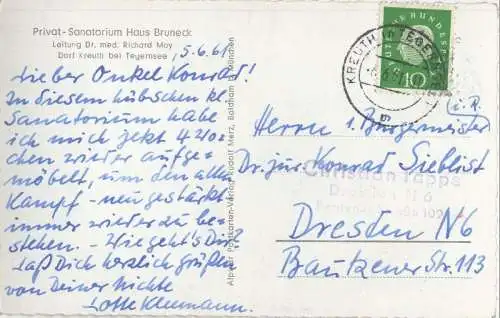 Privat-Sanatorium Haus Bruneck
Leitung Dr. med. Richard May
Dorf Kreuth bei Tegernsee
5.6.61
Lieber Onkel Konrad!
In diesem hübschen kl.
Sanatorium habe
ich mich jetzt 4 Wo-
chen wieder aufge-
möbelt, um den alten
Kampf - neu gestärkt -
immer wieder zu be-
stehen. - Wie geht's Dir?
Laß Dich herzlich grüßen
von Deiner Nichte
Lotte Kleemann.
Alpiner Postkarten-Verlag Rudolf Metz, Baldham b. München
DEUTSCHE BUNDESPOST
10
KREUTH
Herrn 1. Bürgermeister
i. R.
Dr. jur. Konrad Sieblist
Christian Tappe
Dresden N 6
Dresden N6
Bautzener Str. 113